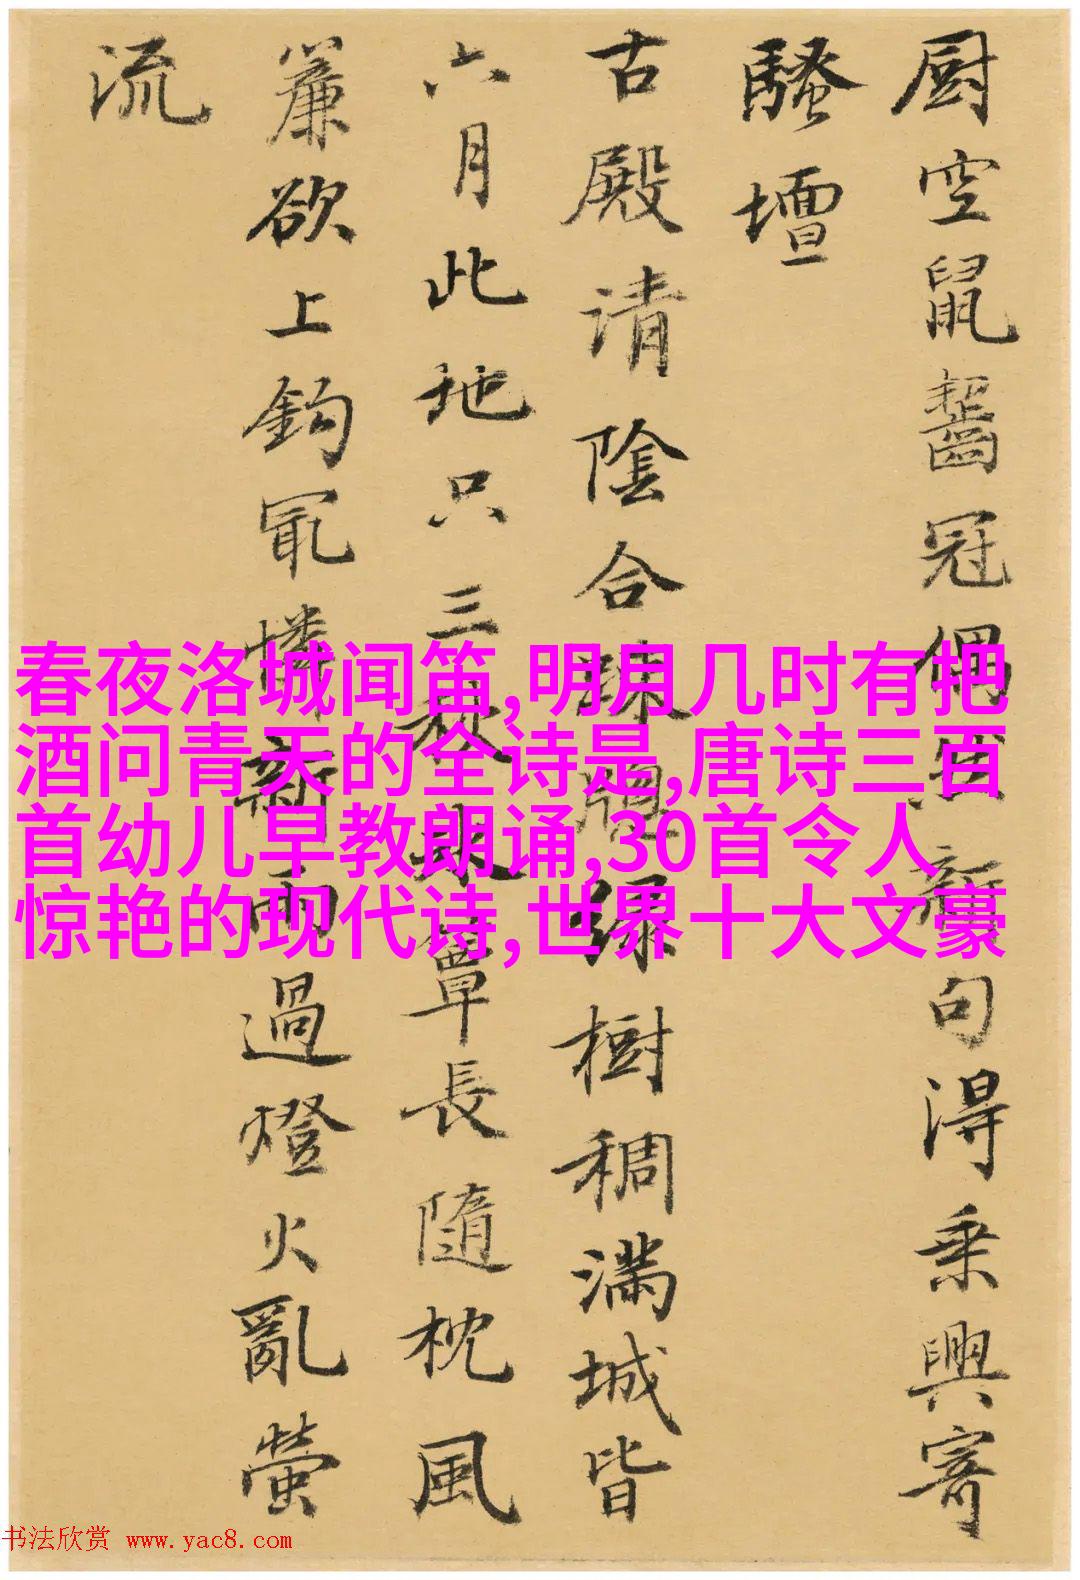 厨空鼠齧冠偶出新句得乘興寄
騷壇
古殿请陰合疎簾绿樹稠滿城皆
六月此地只三秋水簟長隨枕風
簾欲上鈎冣憐新雨過燈火亂螢
流
春夜洛城闻笛,明月几时有把
酒问青天的全诗是,唐诗三百
首幼儿早教朗诵,30首令人
惊艳的现代诗,世界十大文豪
书法欣赏 www.yac8.com